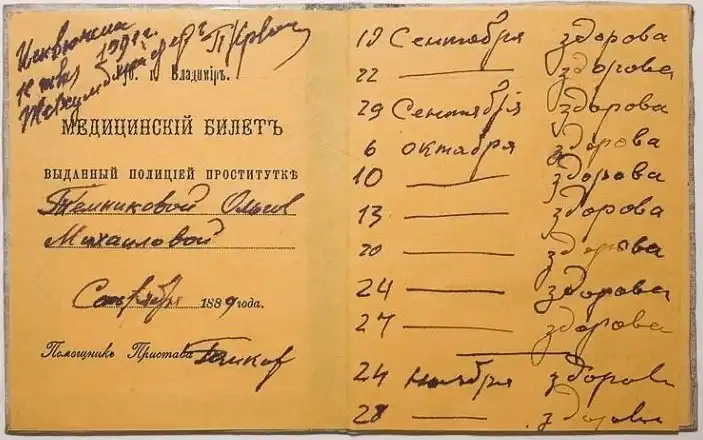 Губ. г. Владимiръ.
МЕДИЦИНСКIЙ БИЛЕТЪ
ВЫДАННЫЙ ПОЛИЦIЕЙ ПРОСТИТУТКѢ
Темниковой Ольге
Михаиловой
Сентября 1889 года.
Помощникъ Пристава
19 Сентября здорова
22 — здорова
29 Сентября здорова
6 октября здорова
10 — здорова
13 — здорова
20 — здорова
24 — здорова
27 — здорова
24 ноября здорова
28 — здорова